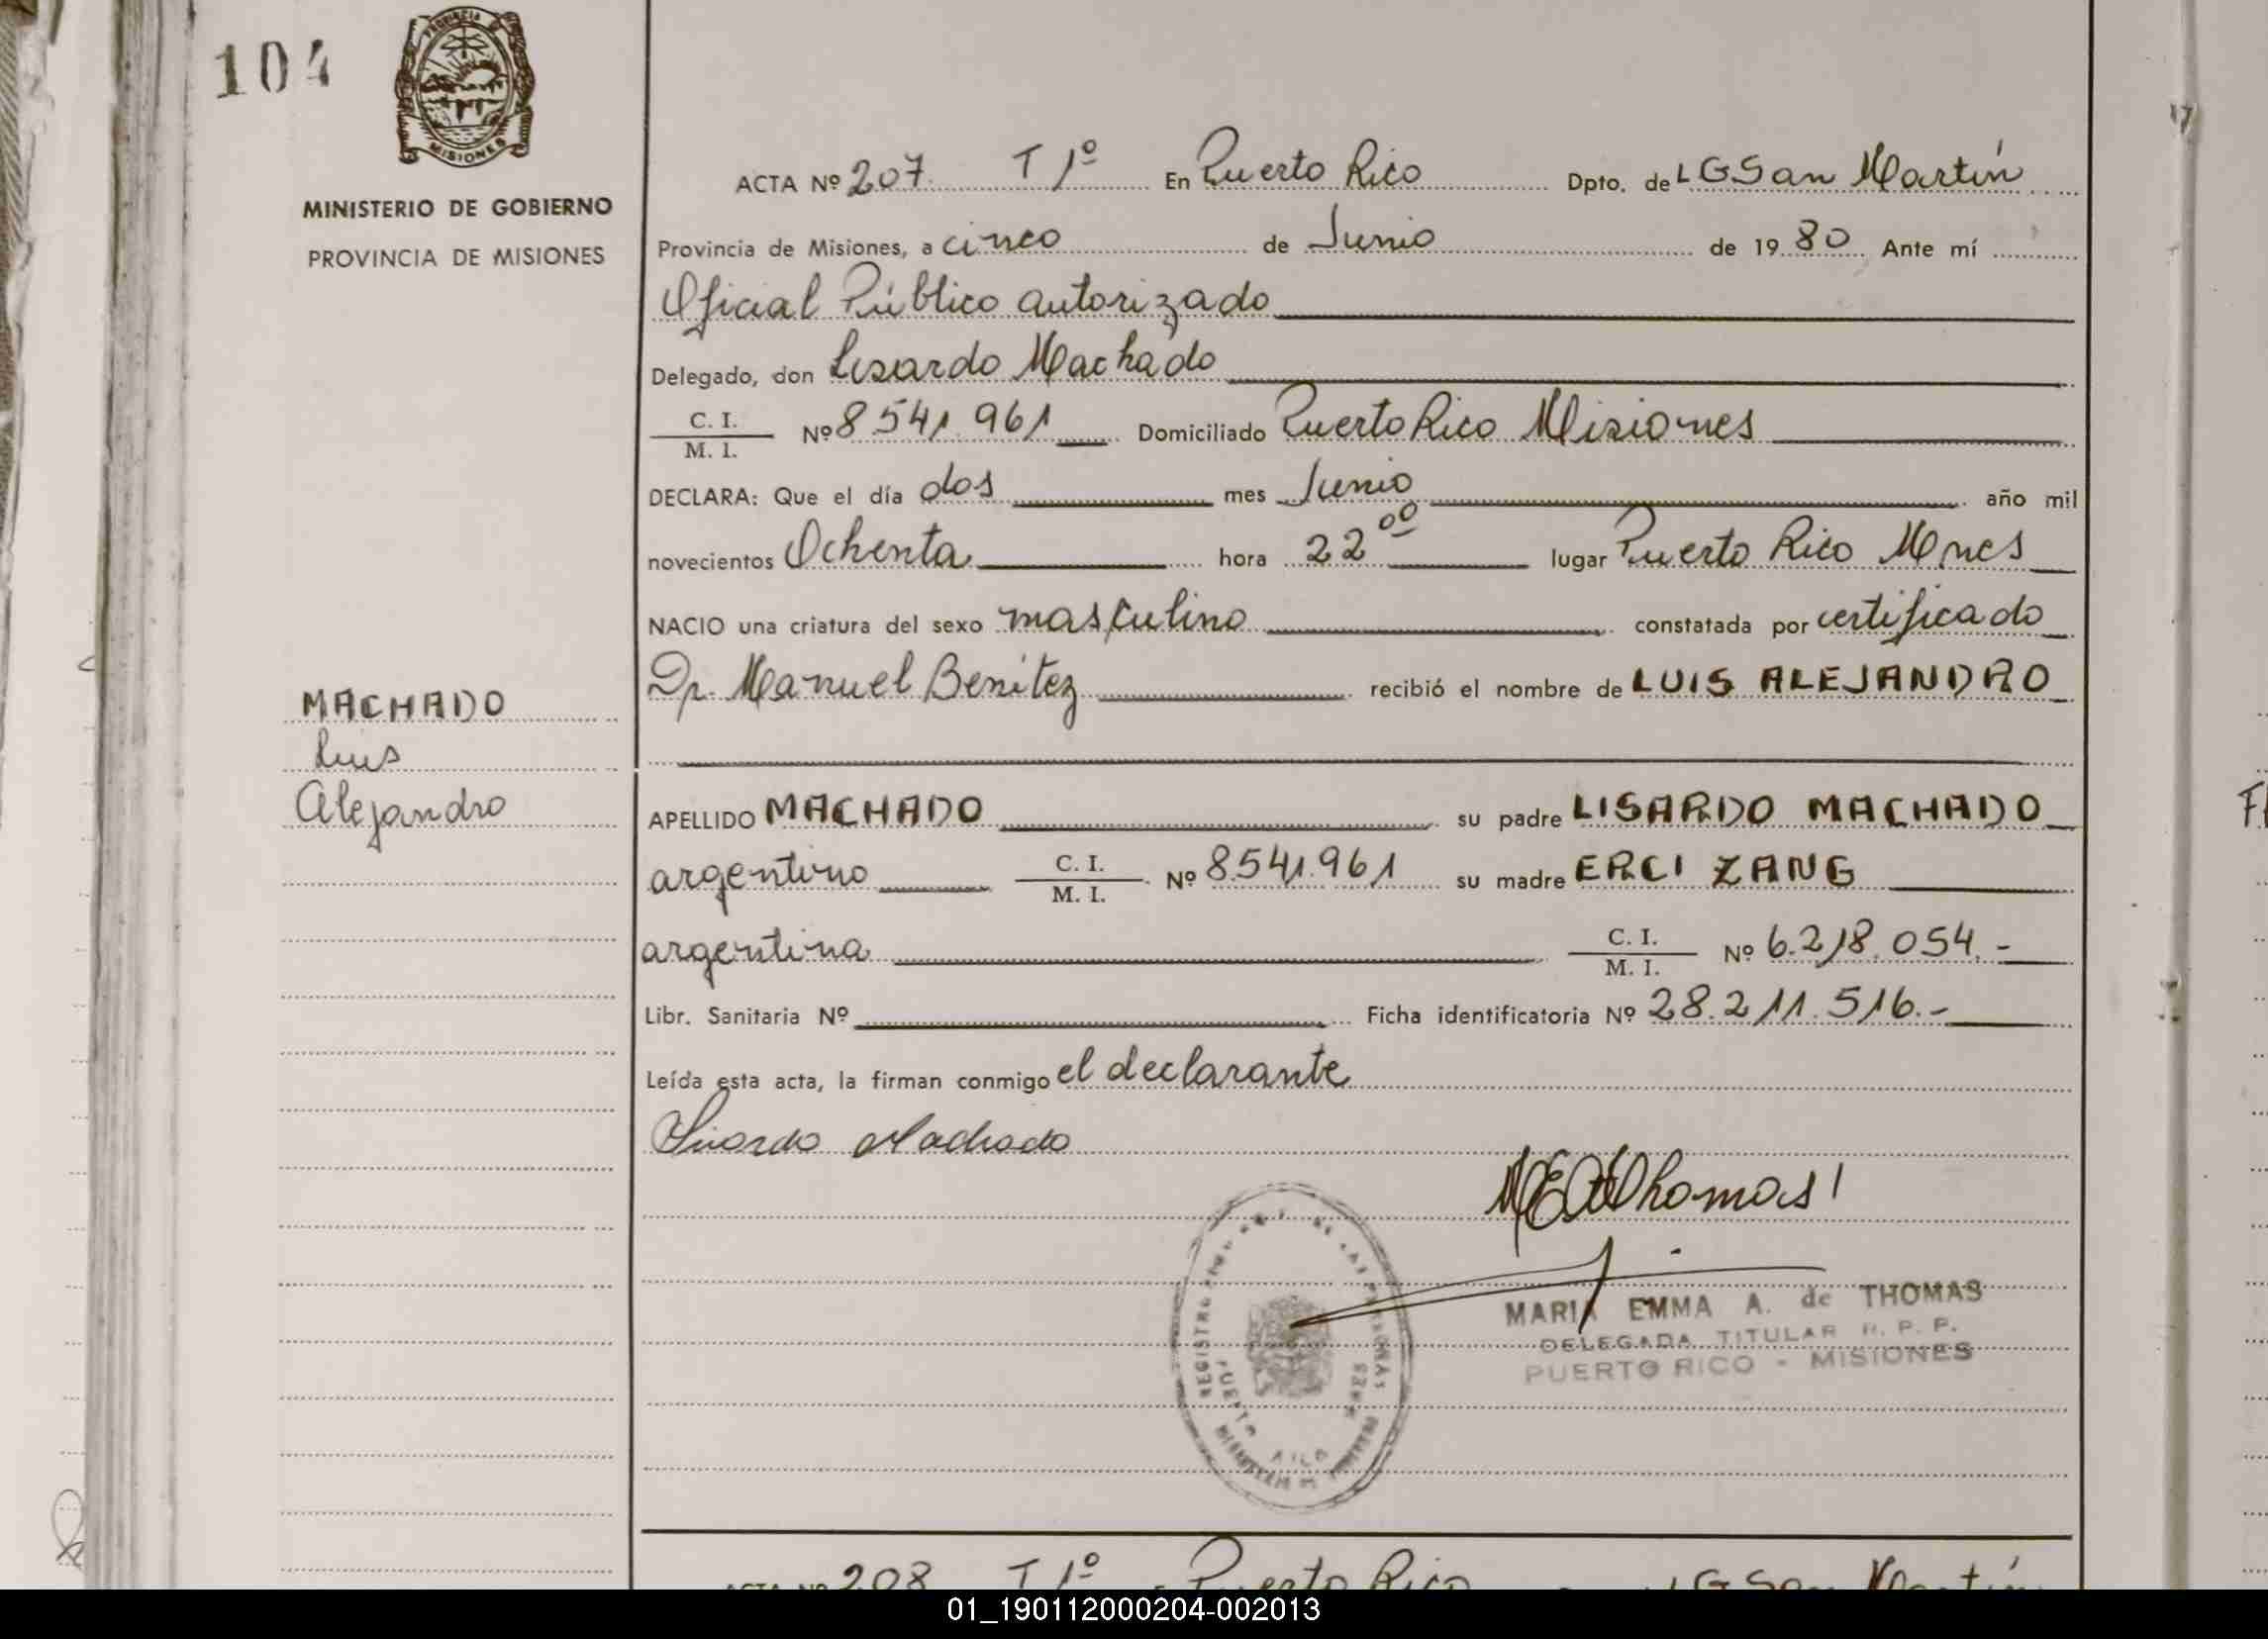 104
PROVINCIA
MISIONES
MINISTERIO DE GOBIERNO
PROVINCIA DE MISIONES
ACTA Nº 207 T 1º En Puerto Rico Dpto. de LGSan Martín
Provincia de Misiones, a cinco de Junio de 1980 Ante mí
Oficial Público autorizado
Delegado, don Lisardo Machado
C. I.
M. I. Nº 8.541.961 Domiciliado Puerto Rico Misiones
DECLARA: Que el día dos mes Junio año mil
novecientos Ochenta hora 22 00 lugar Puerto Rico Mnes
NACIO una criatura del sexo masculino constatada por certificado
Dr. Manuel Benítez recibió el nombre de LUIS ALEJANDRO
MACHADO
Luis
Alejandro
APELLIDO MACHADO su padre LISARDO MACHADO
argentino C. I.
M. I. Nº 8.541.961 su madre ERCI ZANG
argentina C. I.
M. I. Nº 6.218.054.-
Libr. Sanitaria Nº Ficha identificatoria Nº 28.211.516.-
Leída esta acta, la firman conmigo el declarante
Lisardo Machado
MEAdThomas
REGISTRO DE LAS PERSONAS
PUERTO RICO
MARIA EMMA A. de THOMAS
DELEGADA TITULAR R. P. P.
PUERTO RICO - MISIONES
ACTA Nº 208 T 1º Puerto Rico LGSan Martín
01_190112000204-002013